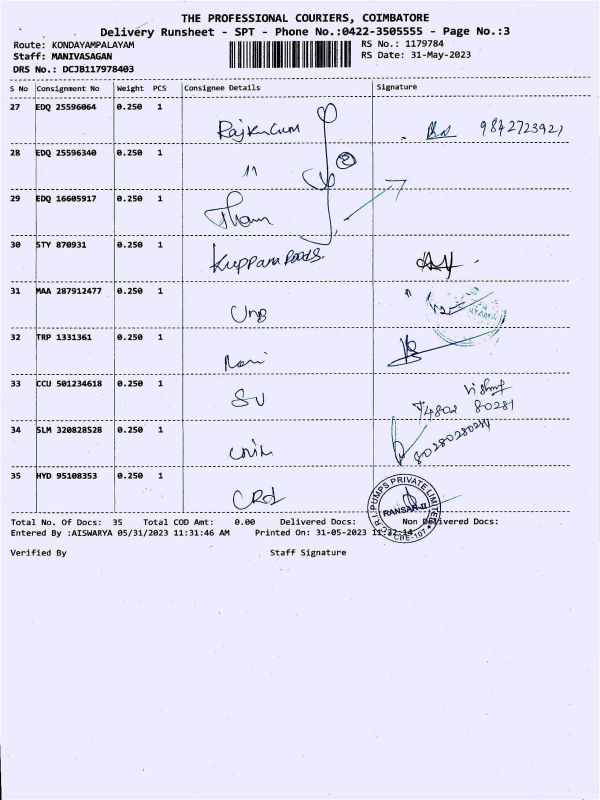 THE PROFESSIONAL COURIERS, COIMBATORE
Delivery Runsheet - SPT - Phone No.:0422-3505555 - Page No.:3
Route: KONDAYAMPALAYAM RS No.: 1179784
Staff: MANIVASAGAN RS Date: 31-May-2023
DRS No.: DCJB117978403
S No Consignment No Weight PCS Consignee Details Signature
27 EDQ 25596064 0.250 1
Rajkucum 9842723921
28 EDQ 25596340 0.250 1
11 2
29 EDQ 16605917 0.250 1
Tham
30 STY 870931 0.250 1
Kuppam
31 MAA 287912477 0.250 1
32 TRP 1331361 0.250 1
33 CCU 501234618 0.250 1
SU 74802 80281
34 SLM 320828528 0.250 1
35 HYD 95108353 0.250 1
C.R.I. PUMPS PRIVATE LIMITED
RANSAR-II
CHE-107
Total No. Of Docs: 35 Total COD Amt: 0.00 Delivered Docs: Non Delivered Docs:
Entered By :AISWARYA 05/31/2023 11:31:46 AM Printed On: 31-05-2023 11:32:14
Verified By Staff Signature